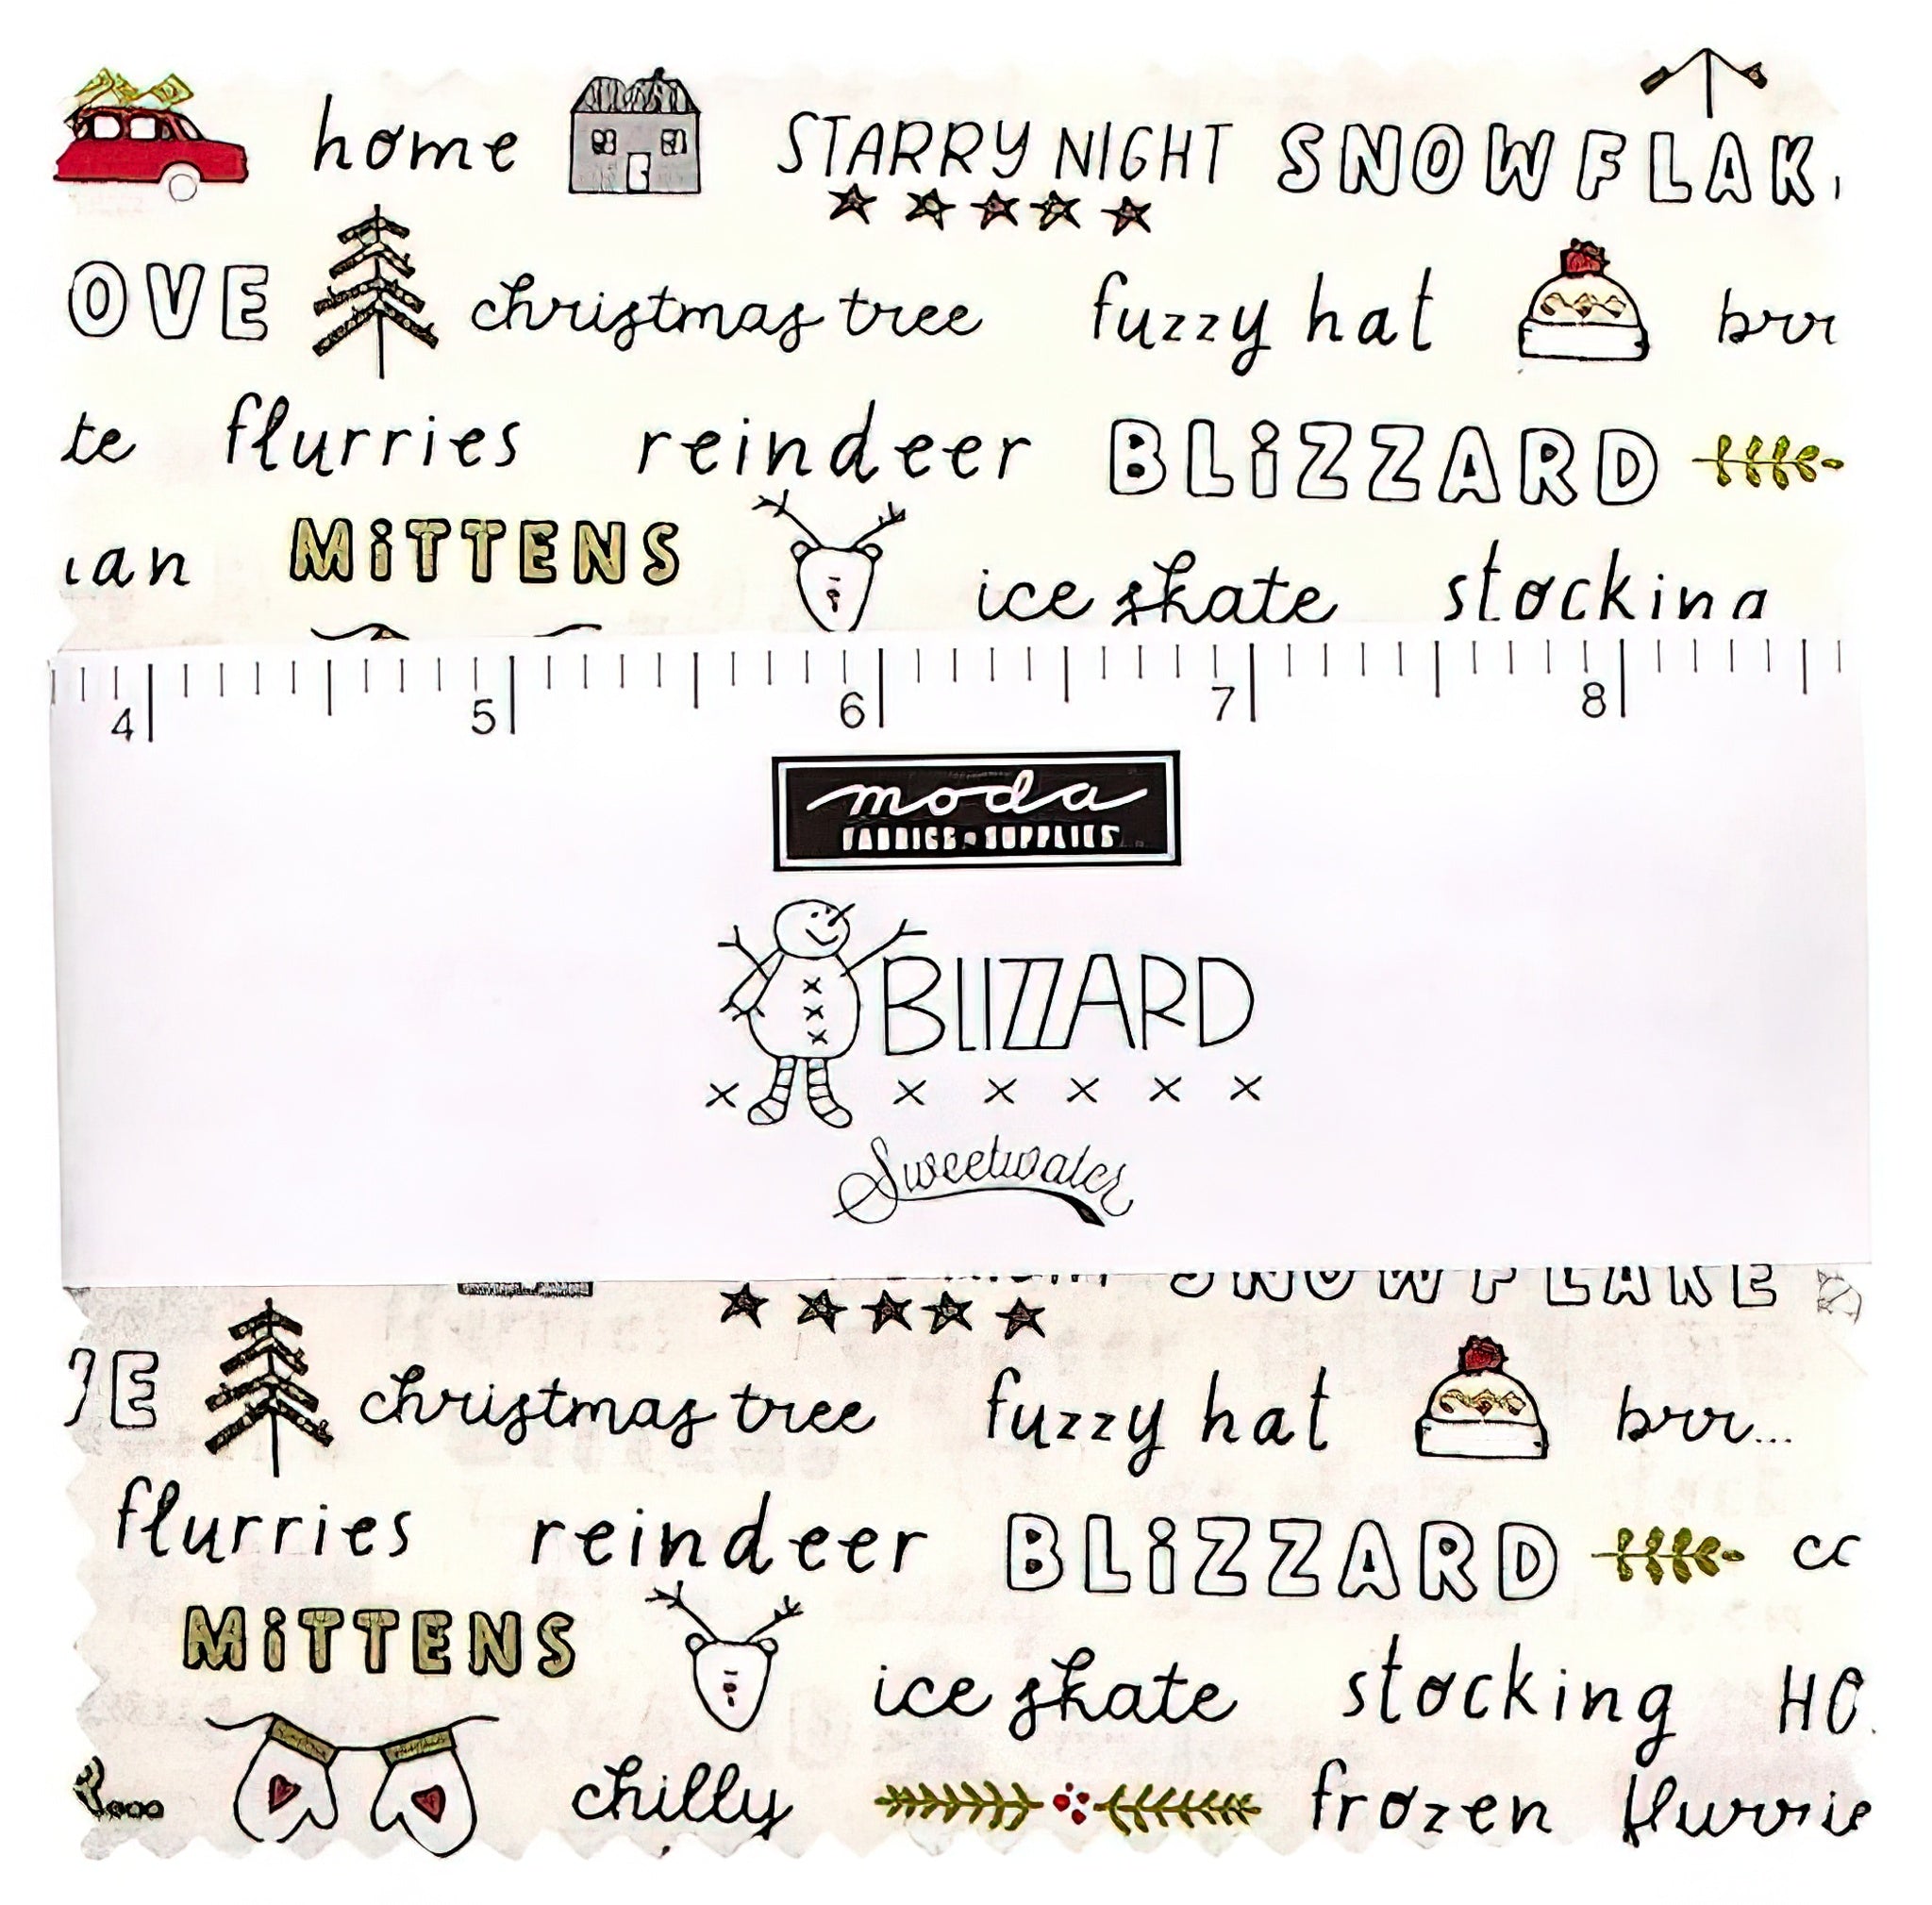 home STARRY NIGHT SNOWFLAK
OVE christmas tree fuzzy hat brr
te flurries reindeer BLiZZARD
an MiTTENS ice skate stocking
4 5 6 7 8
moda
FABRICS + SUPPLIES
BLIZZARD
x x x x x x
Sweetwater
SNOWFLAKE
E christmas tree fuzzy hat brr...
flurries reindeer BLiZZARD
MiTTENS ice skate stocking HO
chilly frozen flurrie